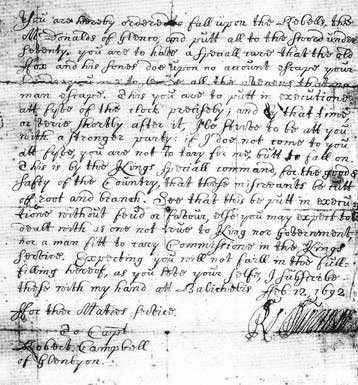 You are hereby ordered to fall upon the Rebells, the
McDonalds of Glenco, and putt all to the sword under
seventy. you are to have a speciall care that the old
Fox and his sones doe upon no account escape your
hands, you are to secure all the avenues that no
man escape. This you are to putt in execution
att fyve of the clock precisely; and by that time,
or verie shortly after it, I'le strive to be att you
with a stronger party: if I doe not come to you
att fyve, you are not to tary for me, butt to fall on.
This is by the Kings speciall command, for the good &
safty of the Country, that these miscreants be cutt
off root and branch. See that this be putt in execu
tione without feud or favour, else you may expect to be
dealt with as one not true to King nor Government,
nor a man fitt to cary Commissione in the Kings
service. Expecting you will not faill in the full-
filling hereof, as you love your selfe, I subscribe
these with my hand att Balicholis Feb. 12, 1692
For their Maties service
To Capt
Robert Campbell
of Glenlyon.